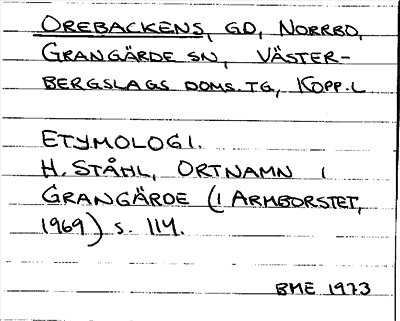 OREBACKENS, GD, NORRBO,
GRANGÄRDE SN, VÄSTER-
BERGSLAGS DOMS.TG, KOPP.L
ETYMOLOGI.
H. STÅHL, ORTNAMN I
GRANGÄRDE (I ARMBORSTET,
1969) S. 114.
BME 1973